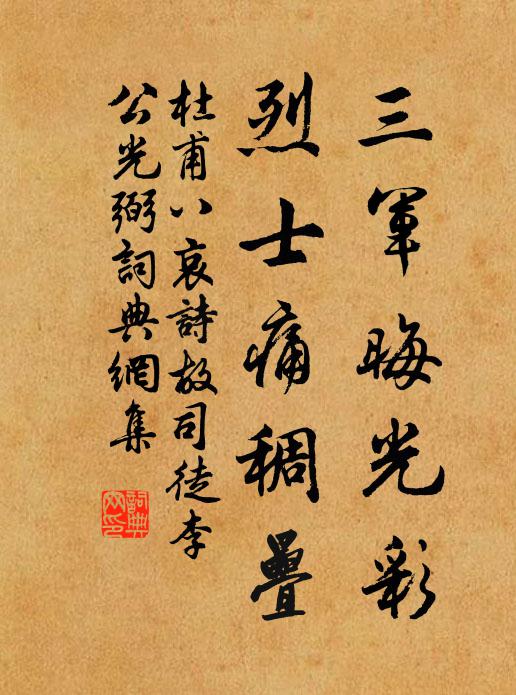 三軍晦光彩
烈士痛稠疊
杜甫八哀詩故司徒李
公光弼詞典網集
詞典
网印